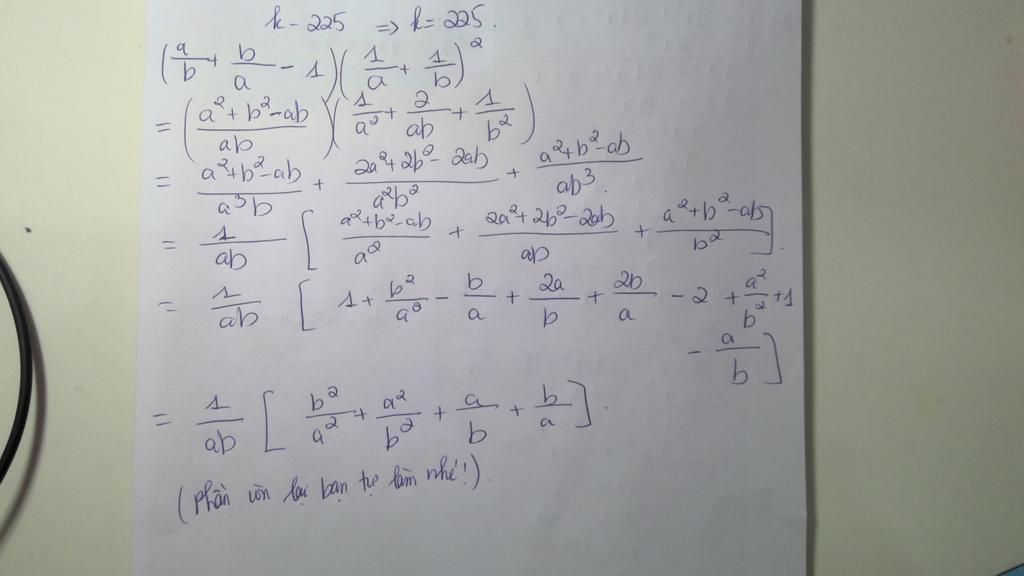 k - 225 ⇒ k = 225.
(a/b + b/a - 1)(1/a + 1/b)²
= ((a² + b² - ab)/(ab))(1/a² + 2/(ab) + 1/b²)
= (a² + b² - ab)/(a³b) + (2a² + 2b² - 2ab)/(a²b²) + (a² + b² - ab)/(ab³).
= 1/(ab) [ (a² + b² - ab)/a² + (2a² + 2b² - 2ab)/(ab) + (a² + b² - ab)/b² ].
= 1/(ab) [ 1 + b²/a² - b/a + 2a/b + 2b/a - 2 + a²/b² + 1
- a/b ]
= 1/(ab) [ b²/a² + a²/b² + a/b + b/a ].
(phần còn lại bạn tự làm nhé!).